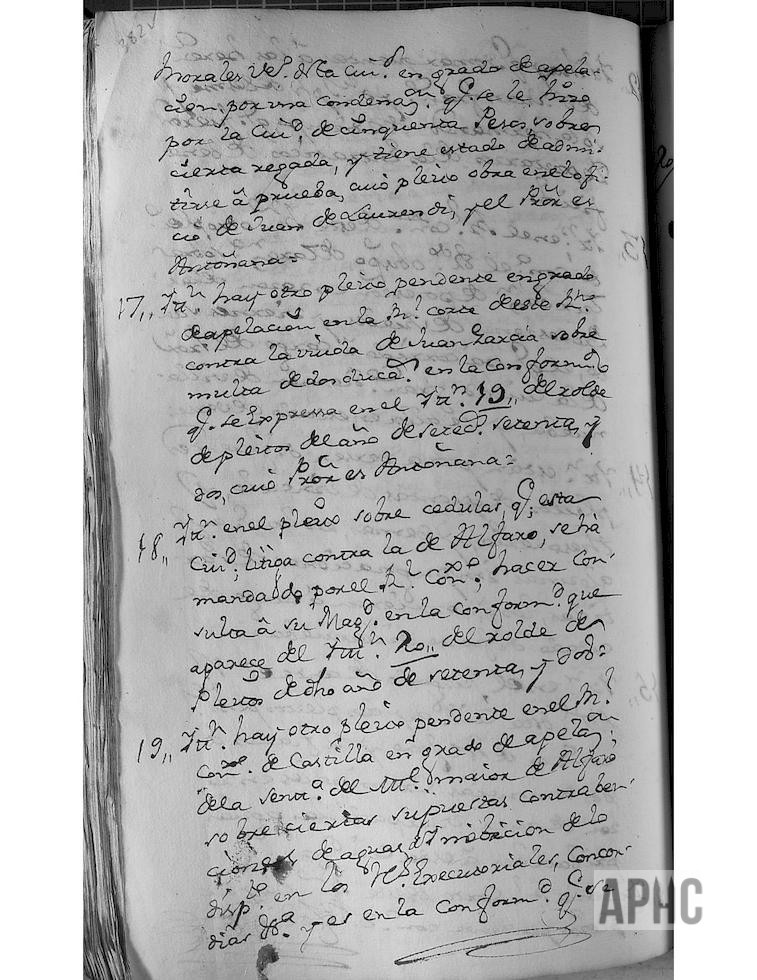 282v
Morales Veº. dsta Ciuᵈ. en grado de apela-
cion, por una condenaᵒⁿ. q̃. se le hizo
por la Ciuᵈ, de cinquenta Pesos, sobre
cierta regada, y tiene estado de admi-
tirse â prueba, cuio pleito obra en el ofi-
cio de Juan de Laurendi, y el Pror̃ es
Antoñana=
17,, Yttⁿ. hay otro pleito pendente en grado
de apelacion en la Rˡ. corte deste Rⁿᵒ
contra la viuda de Juan Garcia sobre
multa de dos ducaˢ. en la conformᵈ
q̃. se Expressa en el Yttⁿ. 19,, del rolde
de pleitos del año de seteᵈ. setenta, y
dos, cuio Pror̃ es Antoñana=
18,, Yttⁿ. en el pleito sobre cedulas, q̃. esta
Ciuᵈ, litiga contra la de Alfaro, se ha
mandado por el Rˡ Conˣᵒ, hacer con-
sulta â su Magᵈ. en la conformᵈ. que
aparece del Yttⁿ. 20,, del rolde de
pleitos de dho año de setenta, y dos=
19,, Yttⁿ. hay otro pleito pendente en el Rˡ
Conˣᵒ. de Castilla en grado de apelaᵒⁿ,
de la sentᵃ. del Allᵉ. maior de Alfaro
sobre ciertas supuestas contraben-
ciones de aguas, de lo
dispᵗᵒ. en las Rˢ. Executoriales, Concor-
dias &ᵃ. y es en la conformᵈ. q̃. se
APHC